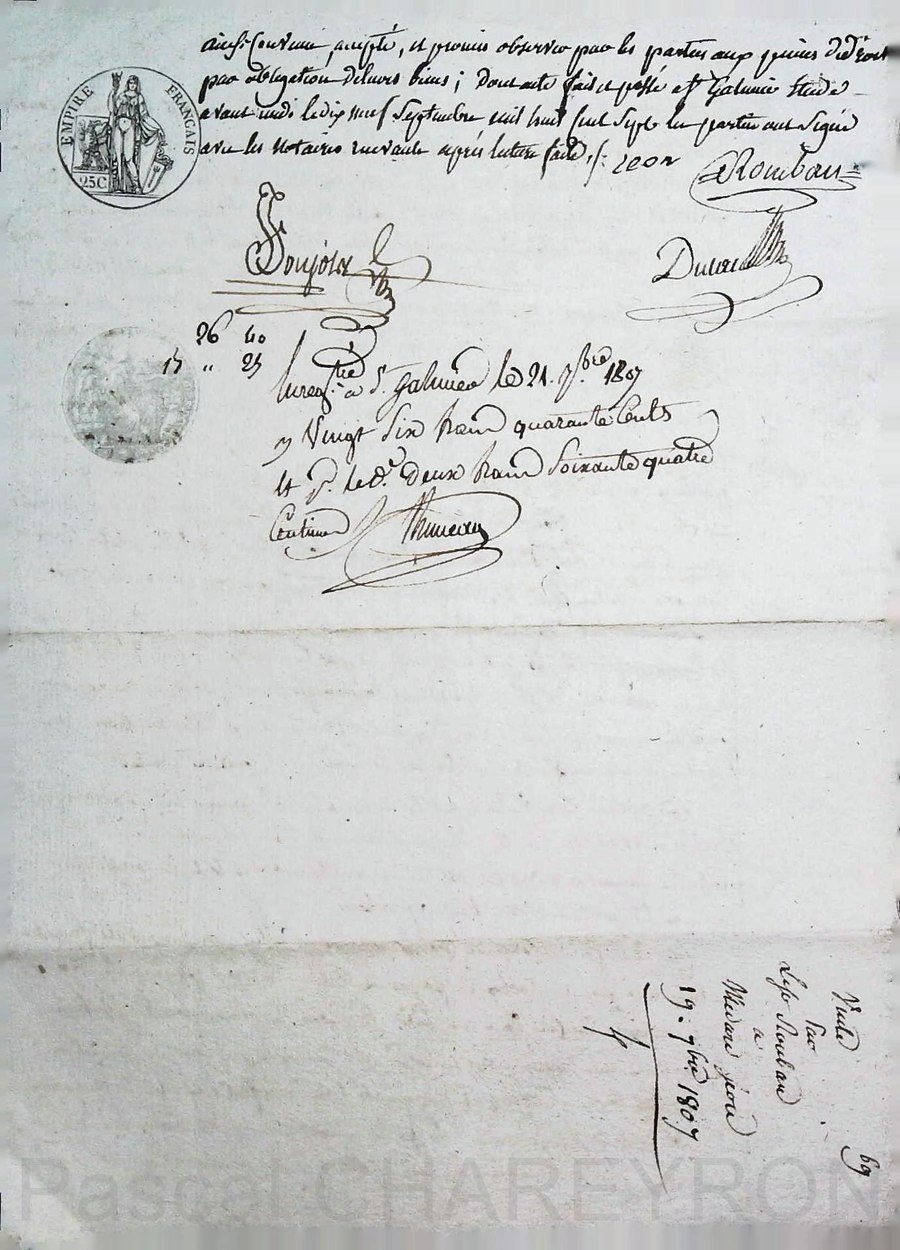 ainsi convenu, accepté, et promis observer par les parties aux peines de droit
par obligation de leurs biens; dont acte fait et passé a St Galmier Etude
avant midi le dix neuf Septembre mil huit cent Sept les parties ont Signé
avec les notaires recevants après lecture faite,
EMPIRE FRANÇAIS
25C
Rouban
26 40
15 " 25
Enreg.tré à St. Galmier le 21. 7bre 1807
Vingt Six francs quarante Cents
et p. le d.e deux francs Soixante quatre
Centimes
Vente
Par
Rouban
a
Medard
19. 7bre 1807
69
Pascal CHAREYRON